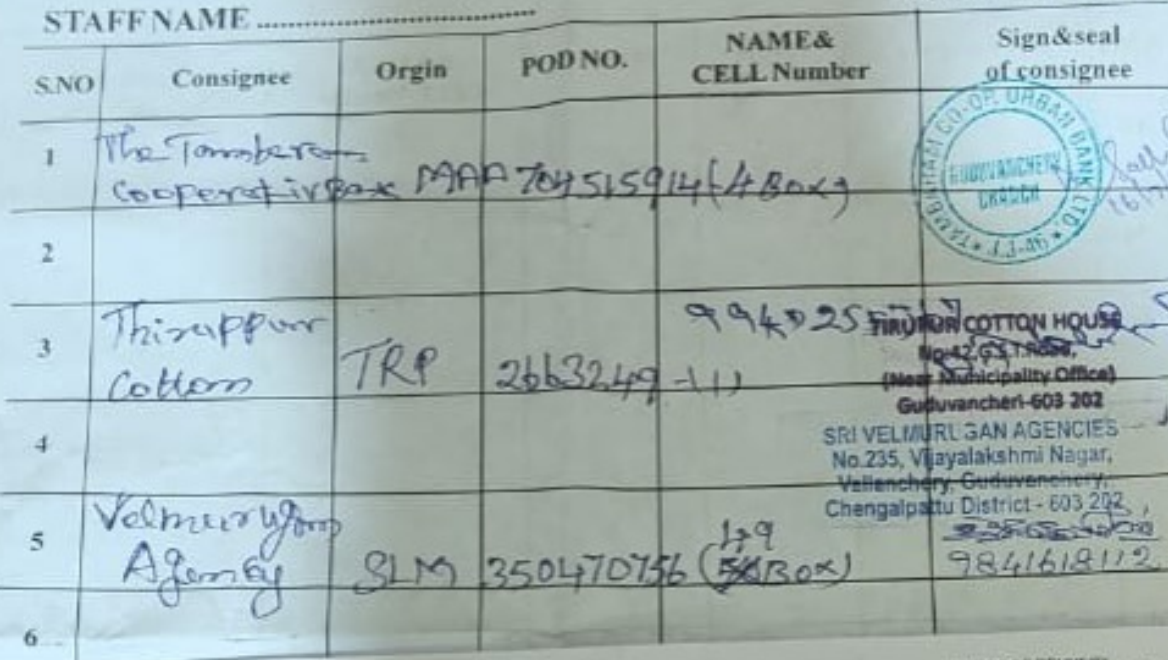 STAFF NAME ........................................
S.NO Consignee Orgin POD NO. NAME& CELL Number Sign&seal of consignee
1 The Tambaram
Cooperative MAA 704515914 (4 Box)
TAMBARAM CO-OP. URBAN BANK LTD.
GUDUVANCHERY
BRANCH
2
3 Thiruppur
Cotton TRP 2663249 -1)
TIRUPUR COTTON HOUSE
No-42, G.S.T. Road,
(Near Municipality Office)
Guduvancheri-603 202
4
SRI VELMURUGAN AGENCIES
No.235, Vijayalakshmi Nagar,
Vallanchery, Guduvanchery,
Chengalpattu District - 603 202
5 Velmurugan
Agency SLM 350470756 (49 Box)
9841618112
6